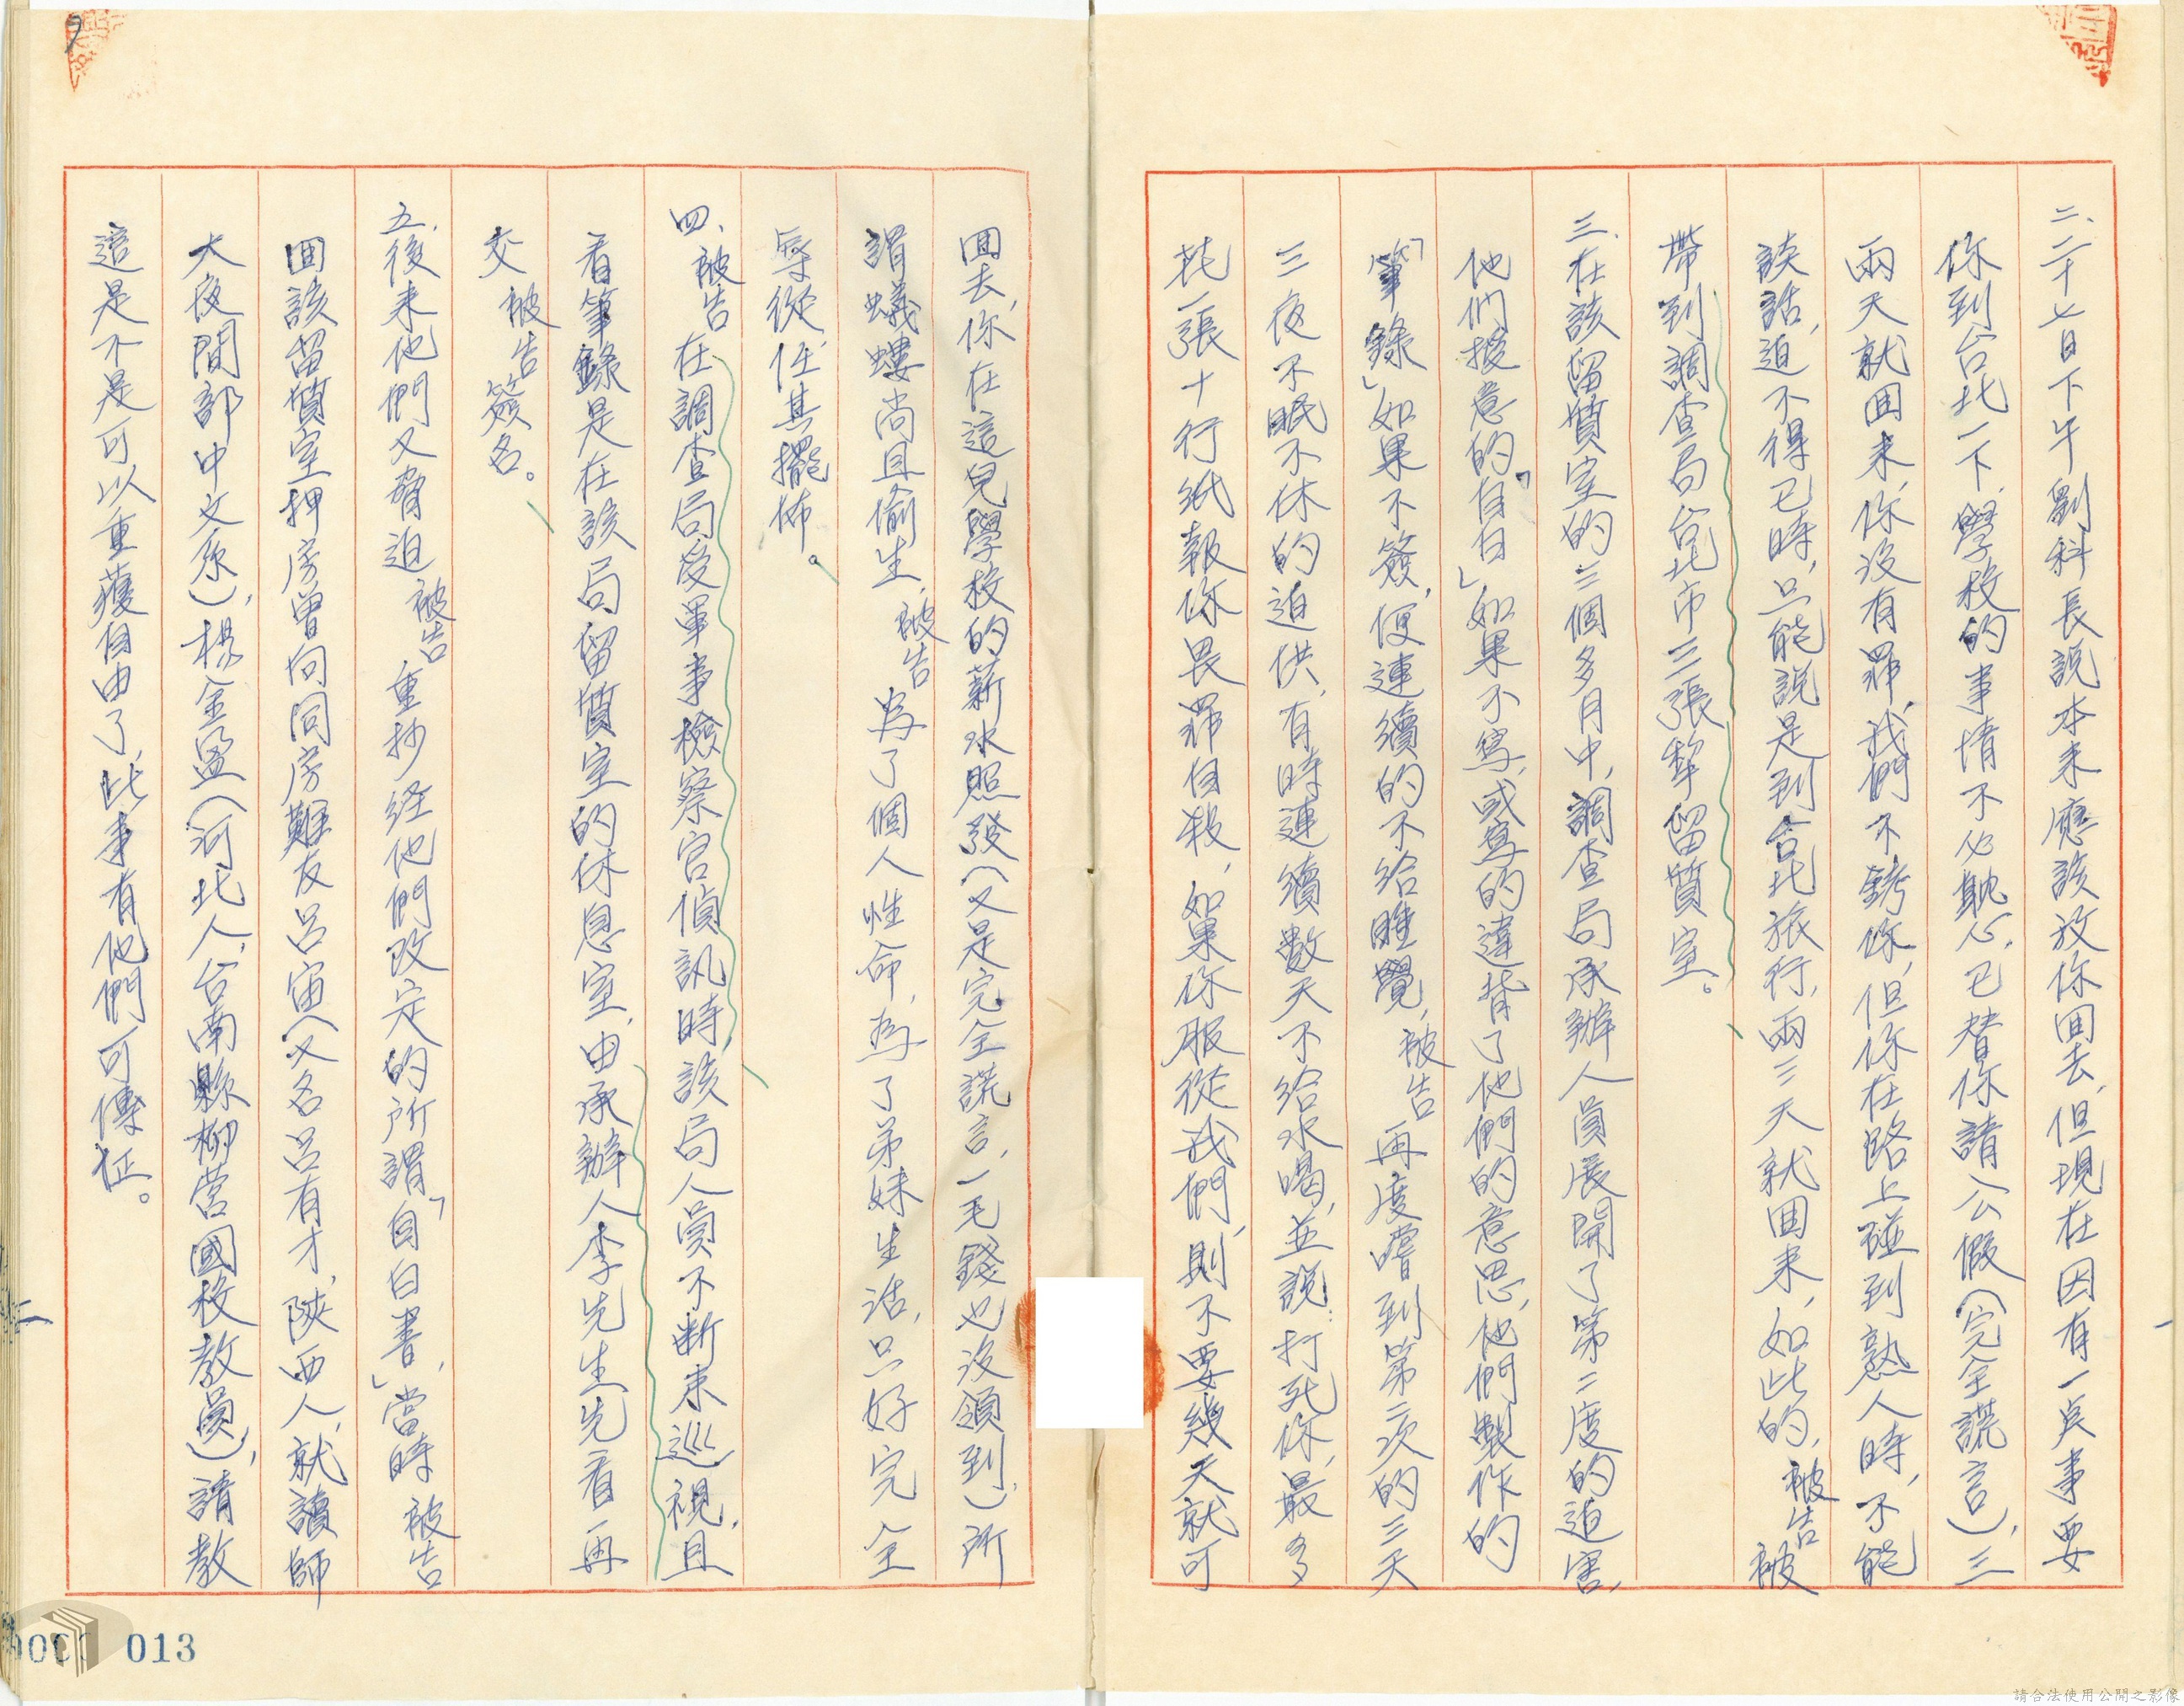 二、二十七日下午劉科長說本来應該放你回去,但現在因有一点事要
你到台北一下,學校的事情不必躭心,已替你請公假(完全謊言),三
兩天就回来,你没有罪,我們不銬你,但你在路上碰到熟人時,不能
談話,迫不得已時,只能説是到台北旅行,兩三天就回来,如此的,被告被
帶到調查局台北市三張犂留質室。
三、在該留質室的三個多月中,調查局承辦人員展開了第二度的迫害,
他們授意的「自白」如果不寫,或寫的違背了他們的意思,他們製作的
「筆錄」如果不簽,便連續的不給睡覺,被告再度嚐到第一次的三天
三夜不眠不休的迫供,有時連續數天不給水喝,並説:打死你,最多
耗一張十行紙報你畏罪自殺,如果你服從我們,則不要幾天就可
回去,你在這兒學校的薪水照發(又是完全謊言,一毛錢也没領到)所
謂螻蟻尚且偷生,被告為了個人性命,為了弟妹生活,只好完全
辱從,任其擺佈。
四、被告在調查局受軍事檢察官偵訊時該局人員不断来巡視,且
看筆錄是在該局留質室的休息室,由承辦人李先生先看再
交被告簽名。
五、後来他們又脅迫被告重抄経他們改定的所謂「自白書」,當時被告
回該留質室押房曾向同房難友呂宙(又名呂有才,陝西人,就讀師
大夜間部中文系),楊金盈(河北人,台南縣柳营國校教員),請教
這是不是可以重獲自由了,此事有他們可傳征。
013
請合法使用公開之影像